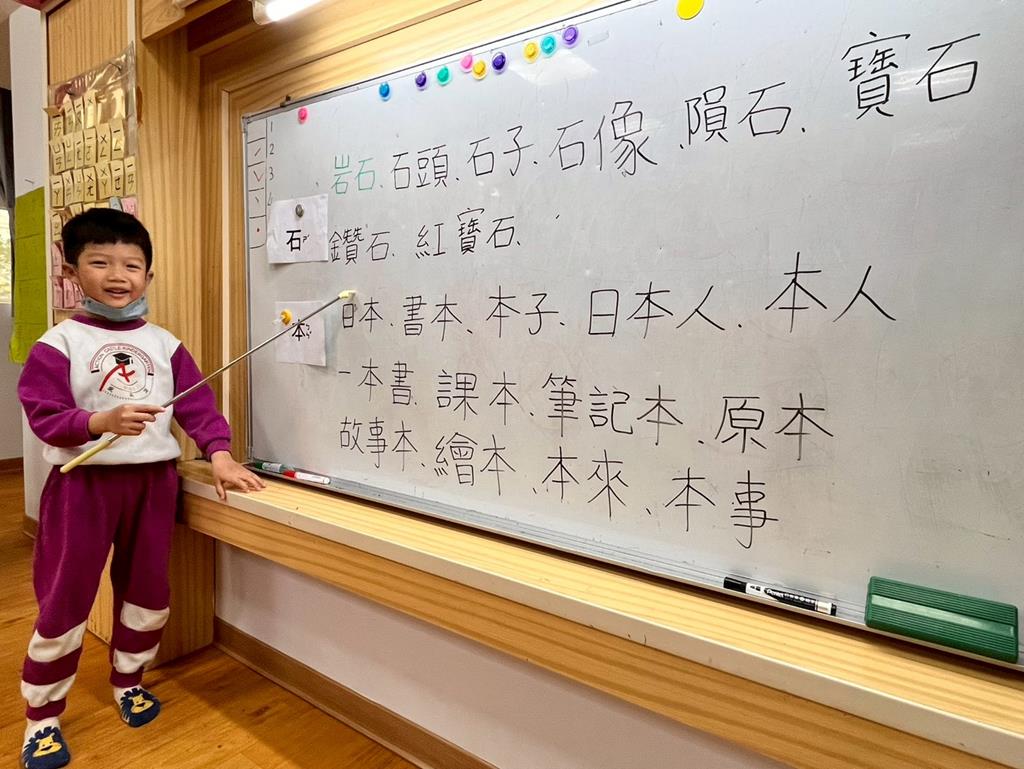 1
2
3
岩石、石頭、石子、石像、隕石、寶石
石
鑽石、紅寶石、
本
日本、書本、本子、日本人、本人
一本書、課本、筆記本、原本
故事本、繪本、本來、本事
Pentel